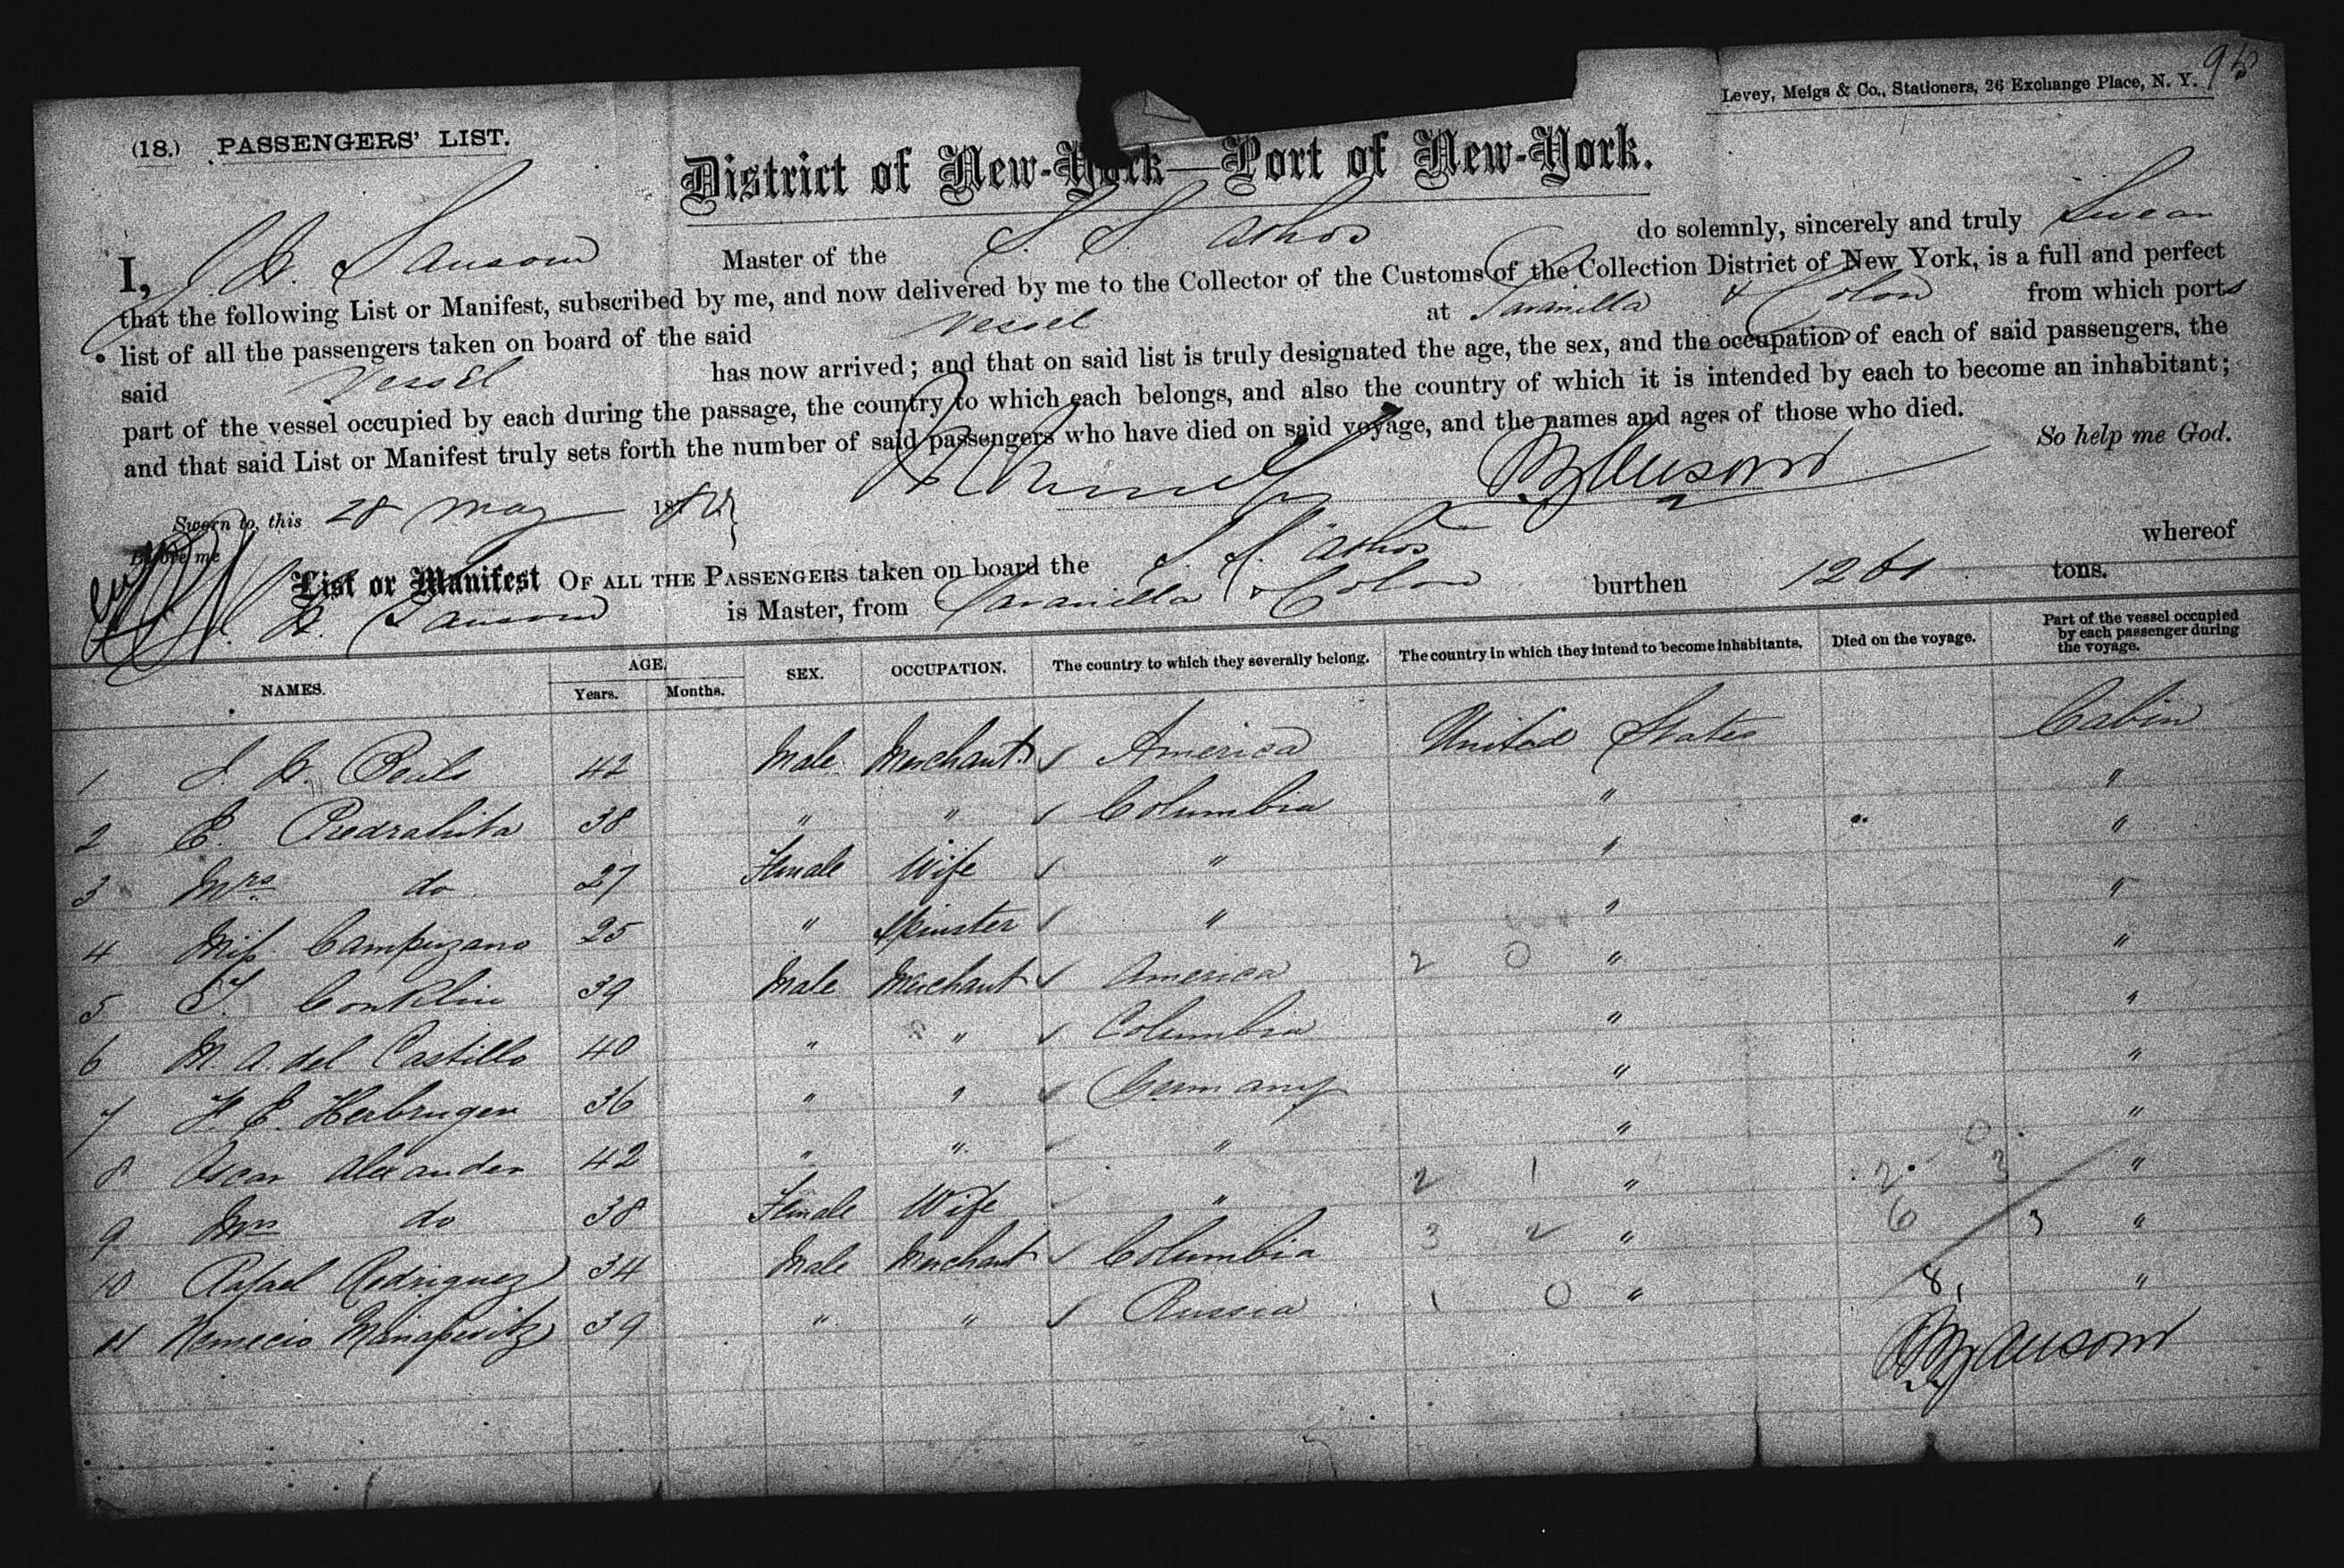 Levey, Meigs & Co., Stationers, 26 Exchange Place, N. Y.
(18.) PASSENGERS' LIST.
District of New-York—Port of New-York.
I, J. W. Sansom Master of the S. S. Athos do solemnly, sincerely and truly Swear
that the following List or Manifest, subscribed by me, and now delivered by me to the Collector of the Customs of the Collection District of New York, is a full and perfect
list of all the passengers taken on board of the said Vessel at Savanilla & Colon from which ports
said Vessel has now arrived; and that on said list is truly designated the age, the sex, and the occupation of each of said passengers, the
part of the vessel occupied by each during the passage, the country to which each belongs, and also the country of which it is intended by each to become an inhabitant;
and that said List or Manifest truly sets forth the number of said passengers who have died on said voyage, and the names and ages of those who died.
So help me God.
Sworn to, this 28 May 188
Before me
List or Manifest OF ALL THE PASSENGERS taken on board the S. S. Athos whereof
W. Sansom is Master, from Savanilla & Colon burthen 1261 tons.
NAMES. AGE. Years. Months. SEX. OCCUPATION. The country to which they severally belong. The country in which they intend to become inhabitants. Died on the voyage. Part of the vessel occupied by each passenger during the voyage.
1 42 Male Merchant America United States Cabin
2 E. Piedrahita 38 " " Columbia " "
3 Mrs do 27 Female Wife " " "
4 Miss Campuzano 25 " Spinster " " "
5 T. Conklin 39 Male Merchant America 2 0 " "
6 M. A. del Castillo 40 " " Columbia " "
7 F. E. Herbruger 36 " " Germany " "
8 Oscar Alexander 42 " " " " "
9 Mrs do 38 Female Wife " 2 1 " 2 3 "
10 Rafael Rodriguez 34 Male Merchant Columbia 3 2 " 6 3 "
11 Nemecio 39 " " Russia 1 0 " 8 "
Sansom